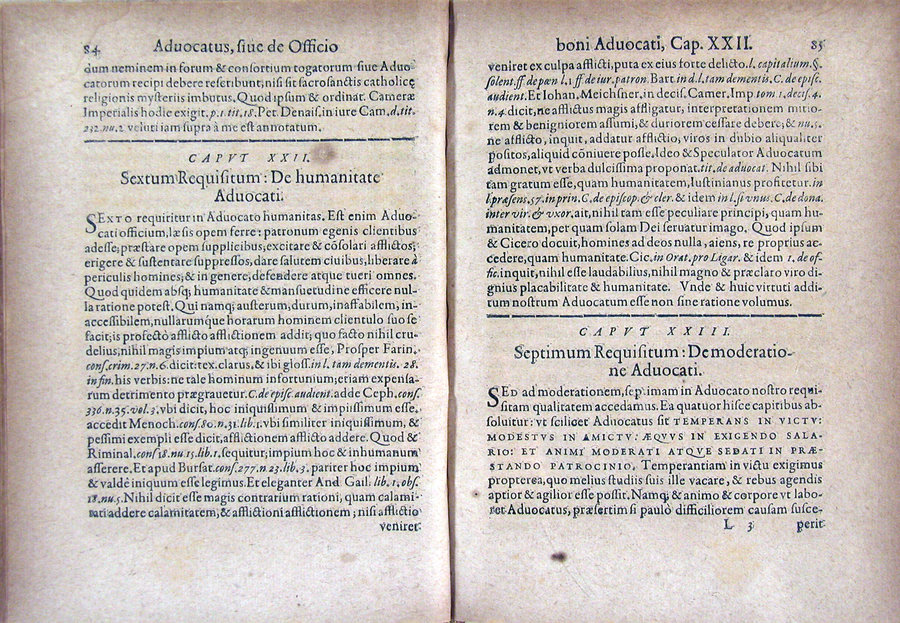 84 Aduocatus, ſiue de Officio
dum neminem in forum & conſortium togatorum ſiue Aduo
catorum recipi debere reſcribunt; niſi ſit ſacroſanctis catholicę
religionis myſteriis imbutus. Quod ipſum & ordinat. Cameræ
Imperialis hodie exigit, p. 1. tit. 18. Pet. Denaiſ. in iure Cam. d. tit.
232. nu. 2. veluti iam ſupra à me eſt annotatum.
CAPVT XXII.
Sextum Requiſitum: De humanitate
Aduocati.
SEXTO requiritur in Aduocato humanitas. Eſt enim Aduo-
cati officium, læſis opem ferre: patronum egenis clientibus
adeſſe; præſtare opem ſupplicibus; excitare & cõſolari afflictos;
erigere & ſuſtentare ſuppreſſos, dare ſalutem ciuibus; liberare à
periculis homines; & in genere, defendere atque tueri omnes.
Quod quidem abſq; humanitate & manſuetudine efficere nul-
la ratione poteſt. Qui namq; auſterum, durum, inaffabilem; in-
acceſſibilem, nullarumque horarum hominem clientulo ſuo ſe
facit; is profectò afflicto afflictionem addit; quo facto nihil cru-
delius, nihil magis impium atq; ingenuum eſſe, Proſper Farin.
conſ. crim. 27. n. 6. dicit: tex. clarus, & ibi gloſſ. in l. tam dementis. 28.
in fin. his verbis: ne tale hominum infortunium; etiam expenſa-
rum detrimento prægrauetur. C. de epiſc. audient. adde Ceph. conſ.
336. n. 35. vol. 3. vbi dicit, hoc iniquiſſimum & impiiſſimum eſſe.
accedit Menoch. conſ. 80. n. 31. lib. 1. vbi ſimiliter iniquiſſimum, &
peſſimi exempli eſſe dicit, afflictionem afflicto addere. Quod &
Riminal. conſ. 18. nu. 15. lib. 1. ſequitur; impium hoc & inhumanum
aſſerere. Et apud Burſat. conſ. 277. n. 23. lib. 3. pariter hoc impium
& valdè iniquum eſſe legimus. Et eleganter And. Gail. lib. 1. obſ.
18. nu. 5. Nihil dicit eſſe magis contrarium rationi, quam calami-
tati addere calamitatem, & afflictioni afflictionem; niſi afflictio
veniret
boni Aduocati, Cap. XXII. 85
veniret ex culpa afflicti, puta ex eius forte delicto. l. capitalium. §.
ſolent. ff. de pœn. l. 1. ff. de iur. patron. Bart. in d. l. tam dementis. C. de epiſc.
audient. Et Iohan. Meichſner. in deciſ. Camer. Imp. tom. 1. deciſ. 4.
n. 4. dicit; ne afflictus magis affligatur, interpretationem mitio-
rem & benigniorem aſſumi, & duriorem ceſſare debere; & nu. 5.
ne afflicto, inquit, addatur afflictio, viros in dubio aliqualiter
poſitos, aliquid cõniuere poſſe. Ideo & Speculator Aduocatum
admonet, vt verba dulciſſima proponat. tit. de aduocat. Nihil ſibi
tam gratum eſſe, quam humanitatem, Iuſtinianus profitetur. in
l. præſens. 57. in prin. C. de epiſcop. & cler. & idem in l. ſi vnus. C. de dona.
inter vir. & vxor. ait, nihil tam eſſe peculiare principi, quam hu-
manitatem, per quam ſolam Dei ſeruatur imago. Quod ipſum
& Cicero docuit, homines ad deos nulla, aiens, re proprius ac-
cedere, quam humanitate. Cic. in Orat. pro Ligar. & idem 1. de of-
fic. inquit, nihil eſſe laudabilius, nihil magno & præclaro viro di-
gnius placabilitate & humanitate. Vnde & huic virtuti addi-
tum noſtrum Aduocatum eſſe non ſine ratione volumus.
CAPVT XXIII.
Septimum Requiſitum: De moderatio-
ne Aduocati.
SED ad moderationem, ſeptimam in Aduocato noſtro requi-
ſitam qualitatem accedamus. Ea quatuor hiſce capitibus ab-
ſoluitur: vt ſcilicet Aduocatus ſit TEMPERANS IN VICTV:
MODESTVS IN AMICTV: ÆQVVS IN EXIGENDO SALA-
RIO: ET ANIMI MODERATI ATQVE SEDATI IN PRÆ-
STANDO PATROCINIO. Temperantiam in victu exigimus
propterea, quo melius ſtudiis ſuis ille vacare, & rebus agendis
aptior & agilior eſſe poſſit. Namq; & animo & corpore vt labo-
ret Aduocatus, præſertim ſi paulò difficiliorem cauſam ſuſce-
L 3 perit